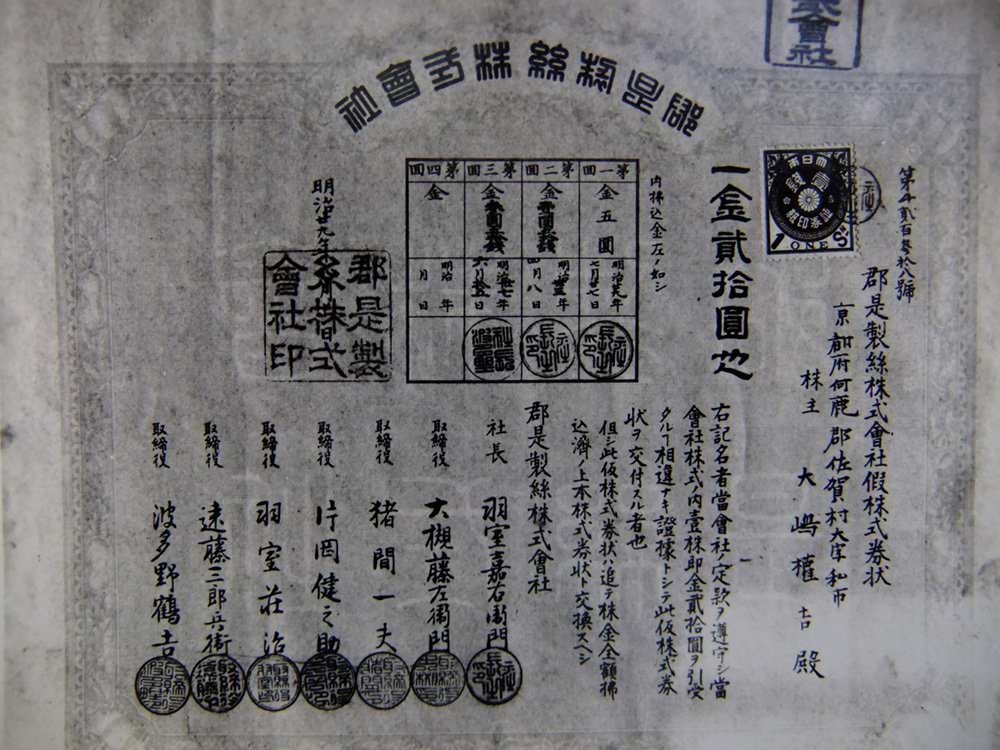 會社
郡是製絲株式會社
第千貳百參拾八號
郡是製絲株式會社假株式券状
京都府何鹿郡佐賀村大字私市
株主 大嶋權吉殿
大日本
壹錢
證券印紙
1 ONE Sⁿ
一金貳拾圓也
右記名者當會社ノ定款ヲ遵守シ當
會社株式ノ内壹株即金貳拾圓ヲ引受
タルヿ相違ナキ證據トシテ此仮株式券
状ヲ交付スル者也
但シ此仮株式券状ハ追テ株金全額拂
込濟ノ上本株式券状ト交換スヘシ
内拂込金左ノ如シ
第一回
金五圓
明治廿九年
七月廿七日
第二回
金
明治卅三年
四月八日
第三回
金
明治卅七年
六月
日
第四回
金
明治 年
月 日
明治廿九年
郡是製
糸株式
會社印
郡是製絲株式會社
社長 羽室嘉右衞門
取締役 大槻藤左衞門
取締役 猪間一夫
取締役 片岡健之助
取締役 羽室莊治
取締役 遠藤三郎兵衞
取締役 波多野鶴吉